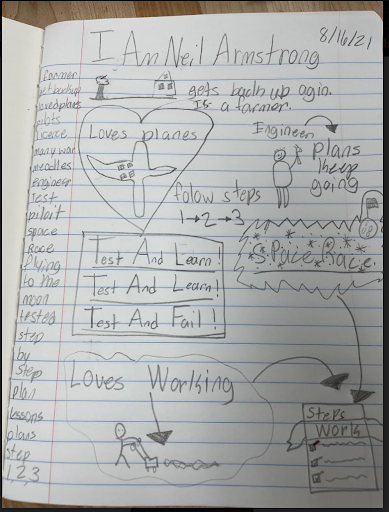 8/16/21
I Am Neil Armstrong
farmer
get backup
loved planes
pilots
licece
many war
meadles
engineer
Test
pilait
space
Race
flying
to the
moon
tested
step
by
step
plan
lessons
plans
step
1,2,3
gets back up agin.
Is a farmer.
Loves planes
Engineer
plans
keep
going
folow steps
1→2→3
Space Race
Test And Learn!
Test And Learn!
Test And Fail!
Loves Working
Steps
Work